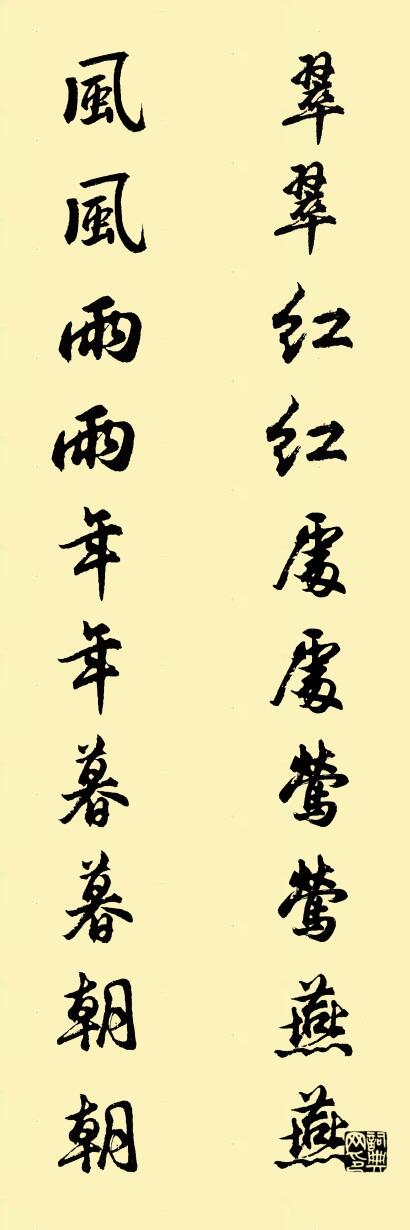 翠翠红红處處莺莺燕燕
風風雨雨年年暮暮朝朝
詞典网印